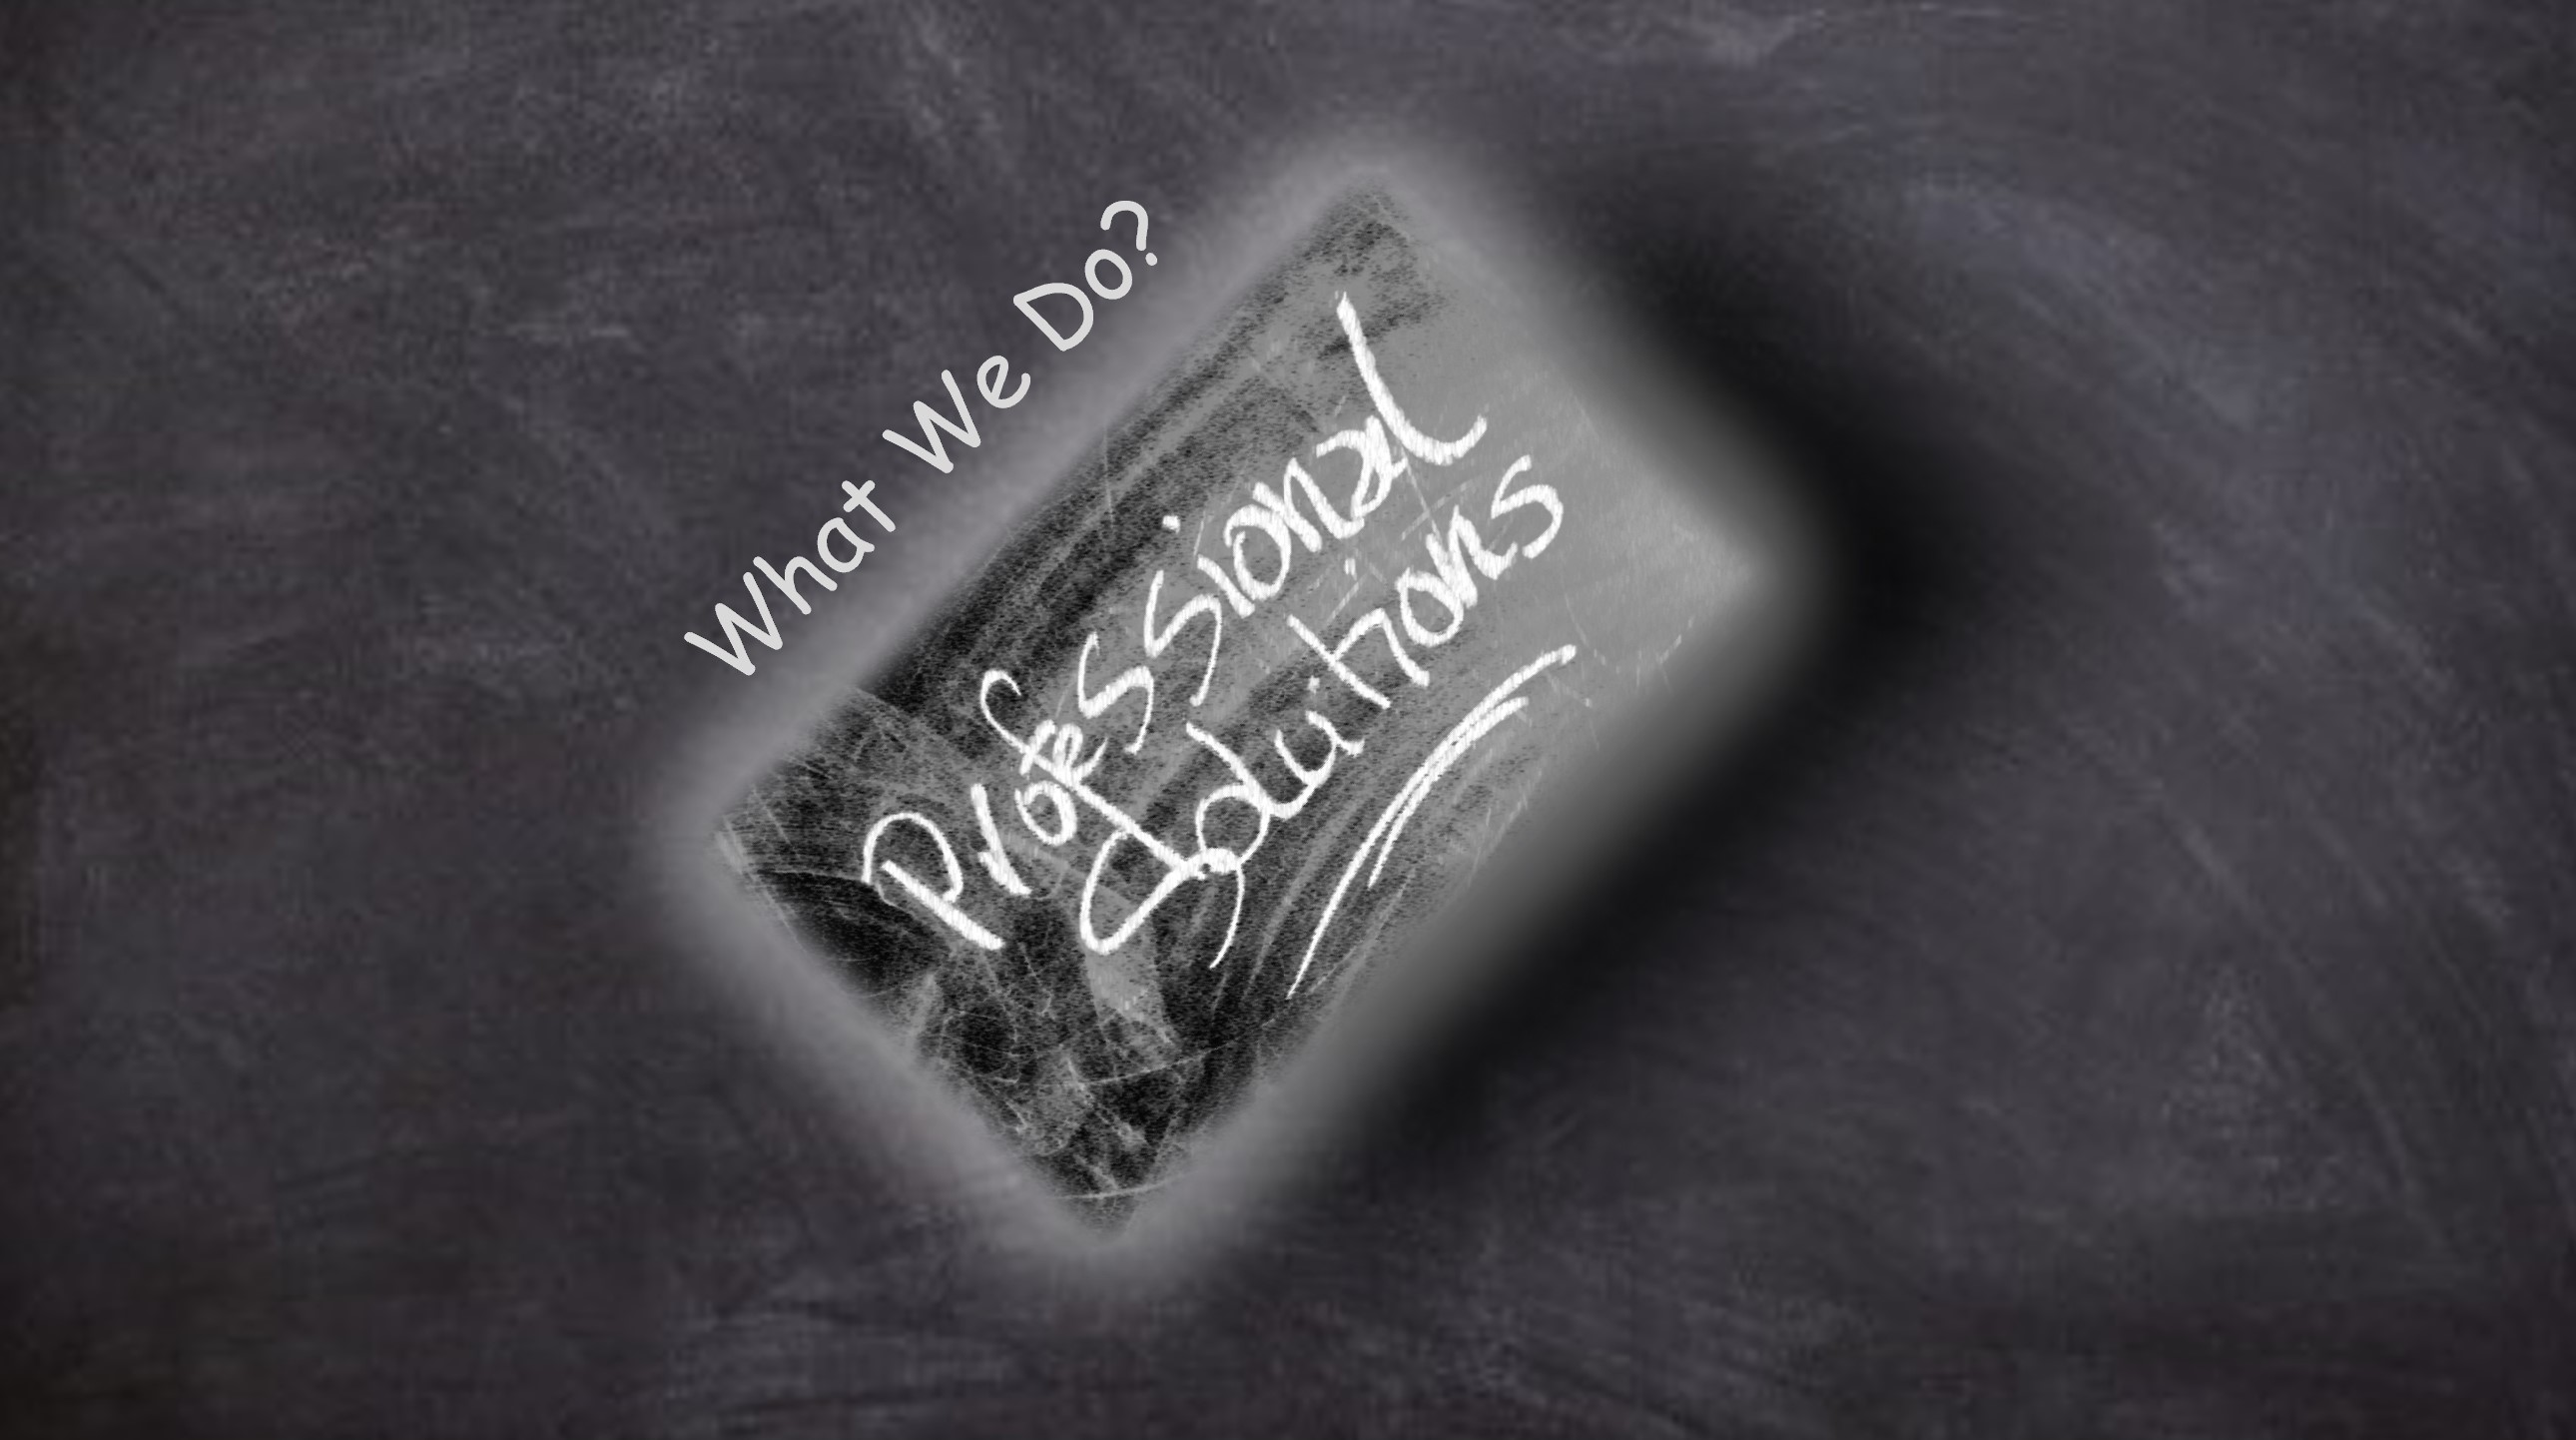 What We Do?
Professional
Solutions